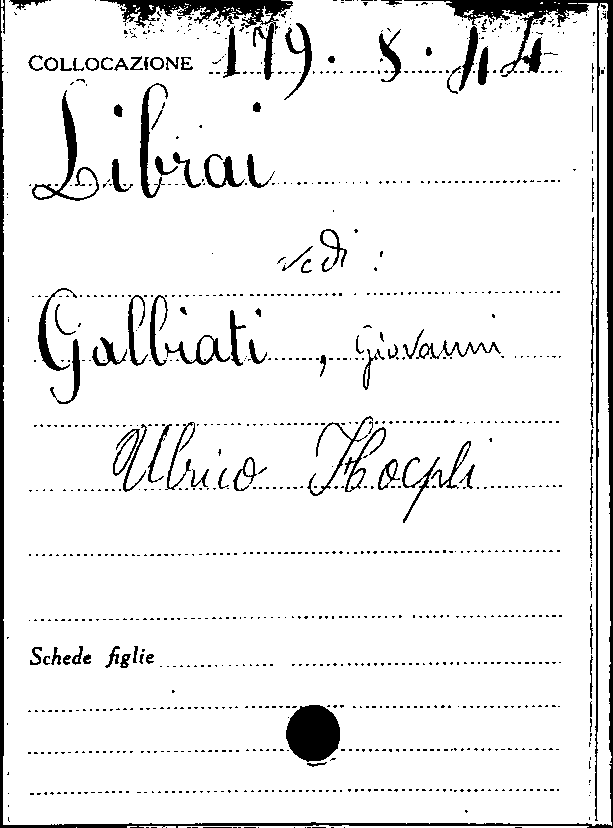 COLLOCAZIONE 179. 8. 44
Librai
vedi:
Galbiati, Giovanni
Ulrico Hoepli
Schede figlie